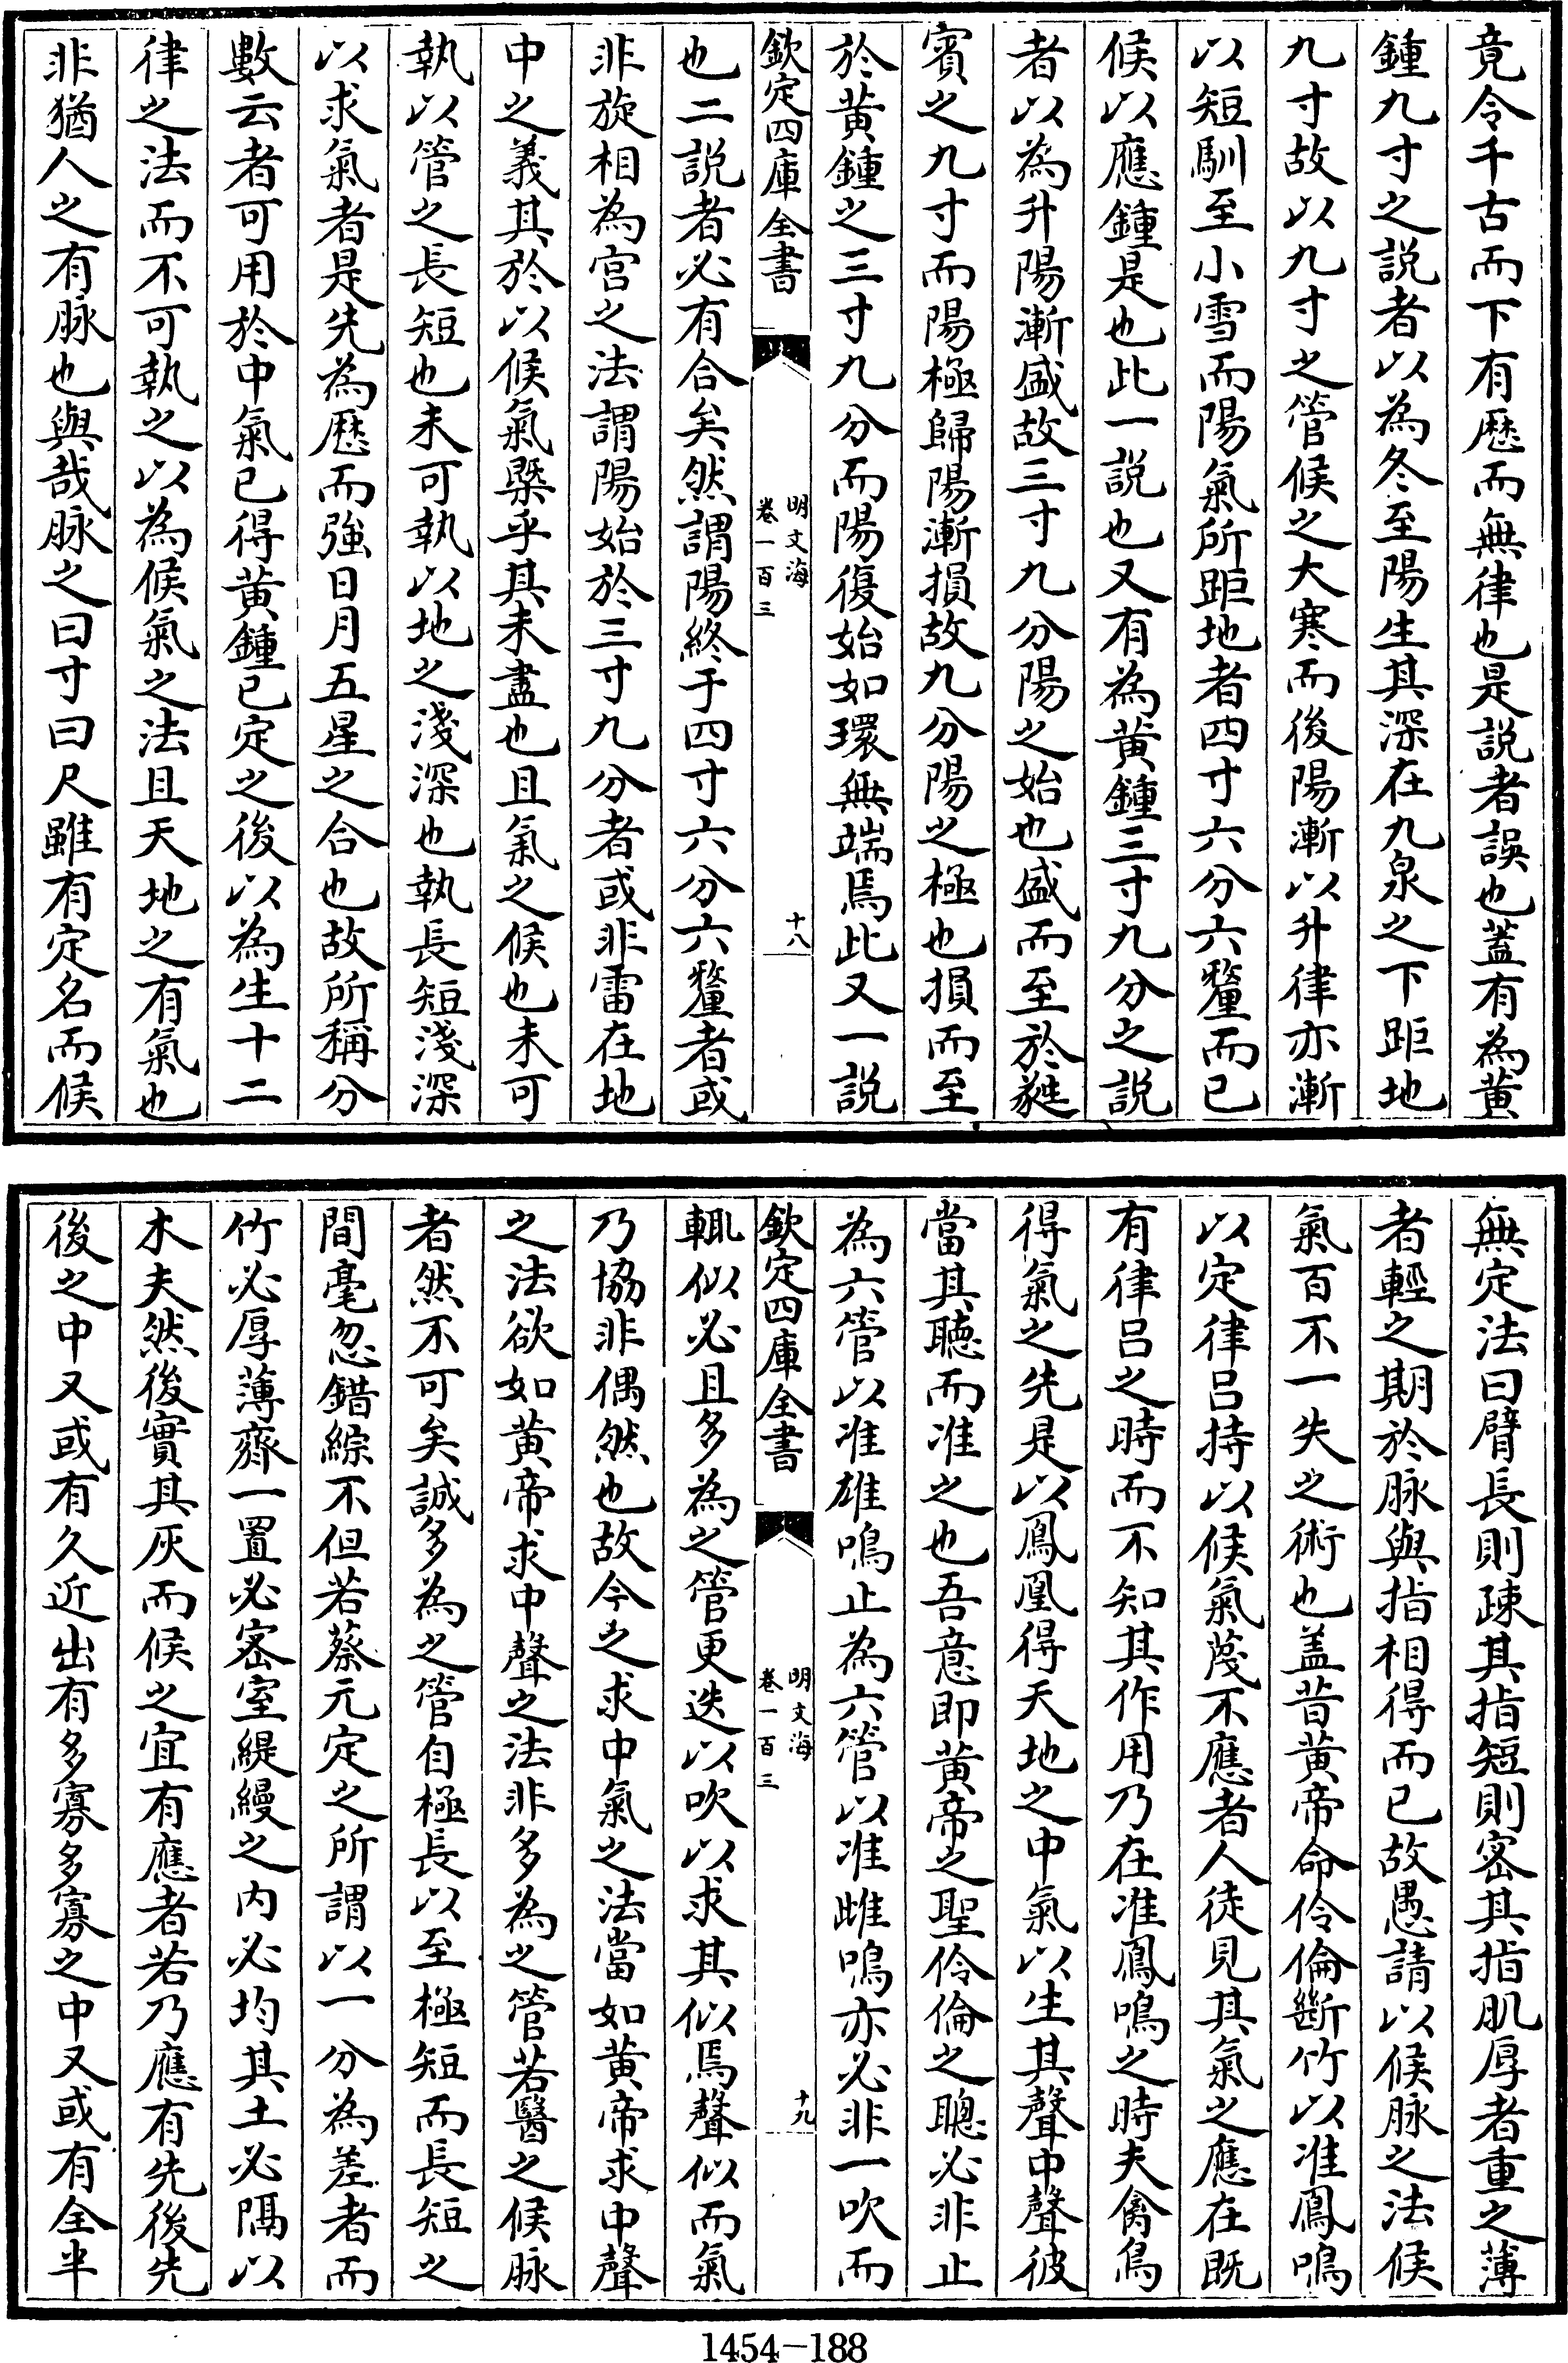 竟令千古而下有厯而無律也是説者誤也蓋有為黄
鍾九寸之説者以為冬至陽生其深在九泉之下距地
九寸故以九寸之管候之大寒而後陽漸以升律亦漸
以短馴至小雪而陽氣所距地者四寸六分六釐而已
候以應鍾是也此一説也又有為黄鍾三寸九分之説
者以為升陽漸盛故三寸九分陽之始也盛而至於蕤
賓之九寸而陽極歸陽漸損故九分陽之極也損而至
於黄鍾之三寸九分而陽復始如環無端焉此又一説
欽定四庫全書
明文海
卷一百三
十八
也二説者必有合矣然謂陽終于四寸六分六釐者或
非旋相為宫之法謂陽始於三寸九分者或非雷在地
中之義其於以候氣槩乎其未盡也且氣之候也未可
執以管之長短也未可執以地之淺深也執長短淺深
以求氣者是先為厯而強日月五星之合也故所稱分
數云者可用於中氣已得黄鍾已定之後以為生十二
律之法而不可執之以為候氣之法且天地之有氣也
非猶人之有脉也與哉脉之曰寸曰尺雖有定名而候
無定法曰臂長則疎其指短則密其指肌厚者重之薄
者輕之期於脉與指相得而已故愚請以候脉之法候
氣百不一失之術也盖昔黄帝命伶倫斷竹以准鳳鳴
以定律吕持以候氣蔑不應者人徒見其氣之應在既
有律吕之時而不知其作用乃在准鳳鳴之時夫禽鳥
得氣之先是以鳳凰得天地之中氣以生其聲中聲彼
當其聴而准之也吾意即黄帝之聖伶倫之聰必非止
為六管以准雄鳴止為六管以准雌鳴亦必非一吹而
欽定四庫全書
明文海
卷一百三
十九
輒似必且多為之管更迭以吹以求其似焉聲似而氣
乃恊非偶然也故今之求中氣之法當如黄帝求中聲
之法欲如黄帝求中聲之法非多為之管若醫之候脉
者然不可矣誠多為之管自極長以至極短而長短之
間毫忽錯綜不但若蔡元定之所謂以一分為差者而
竹必厚薄齊一置必密室緹縵之内必均其土必隔以
木夫然後實其灰而候之宜有應者若乃應有先後先
後之中又或有久近出有多寡多寡之中又或有全半
1454-188